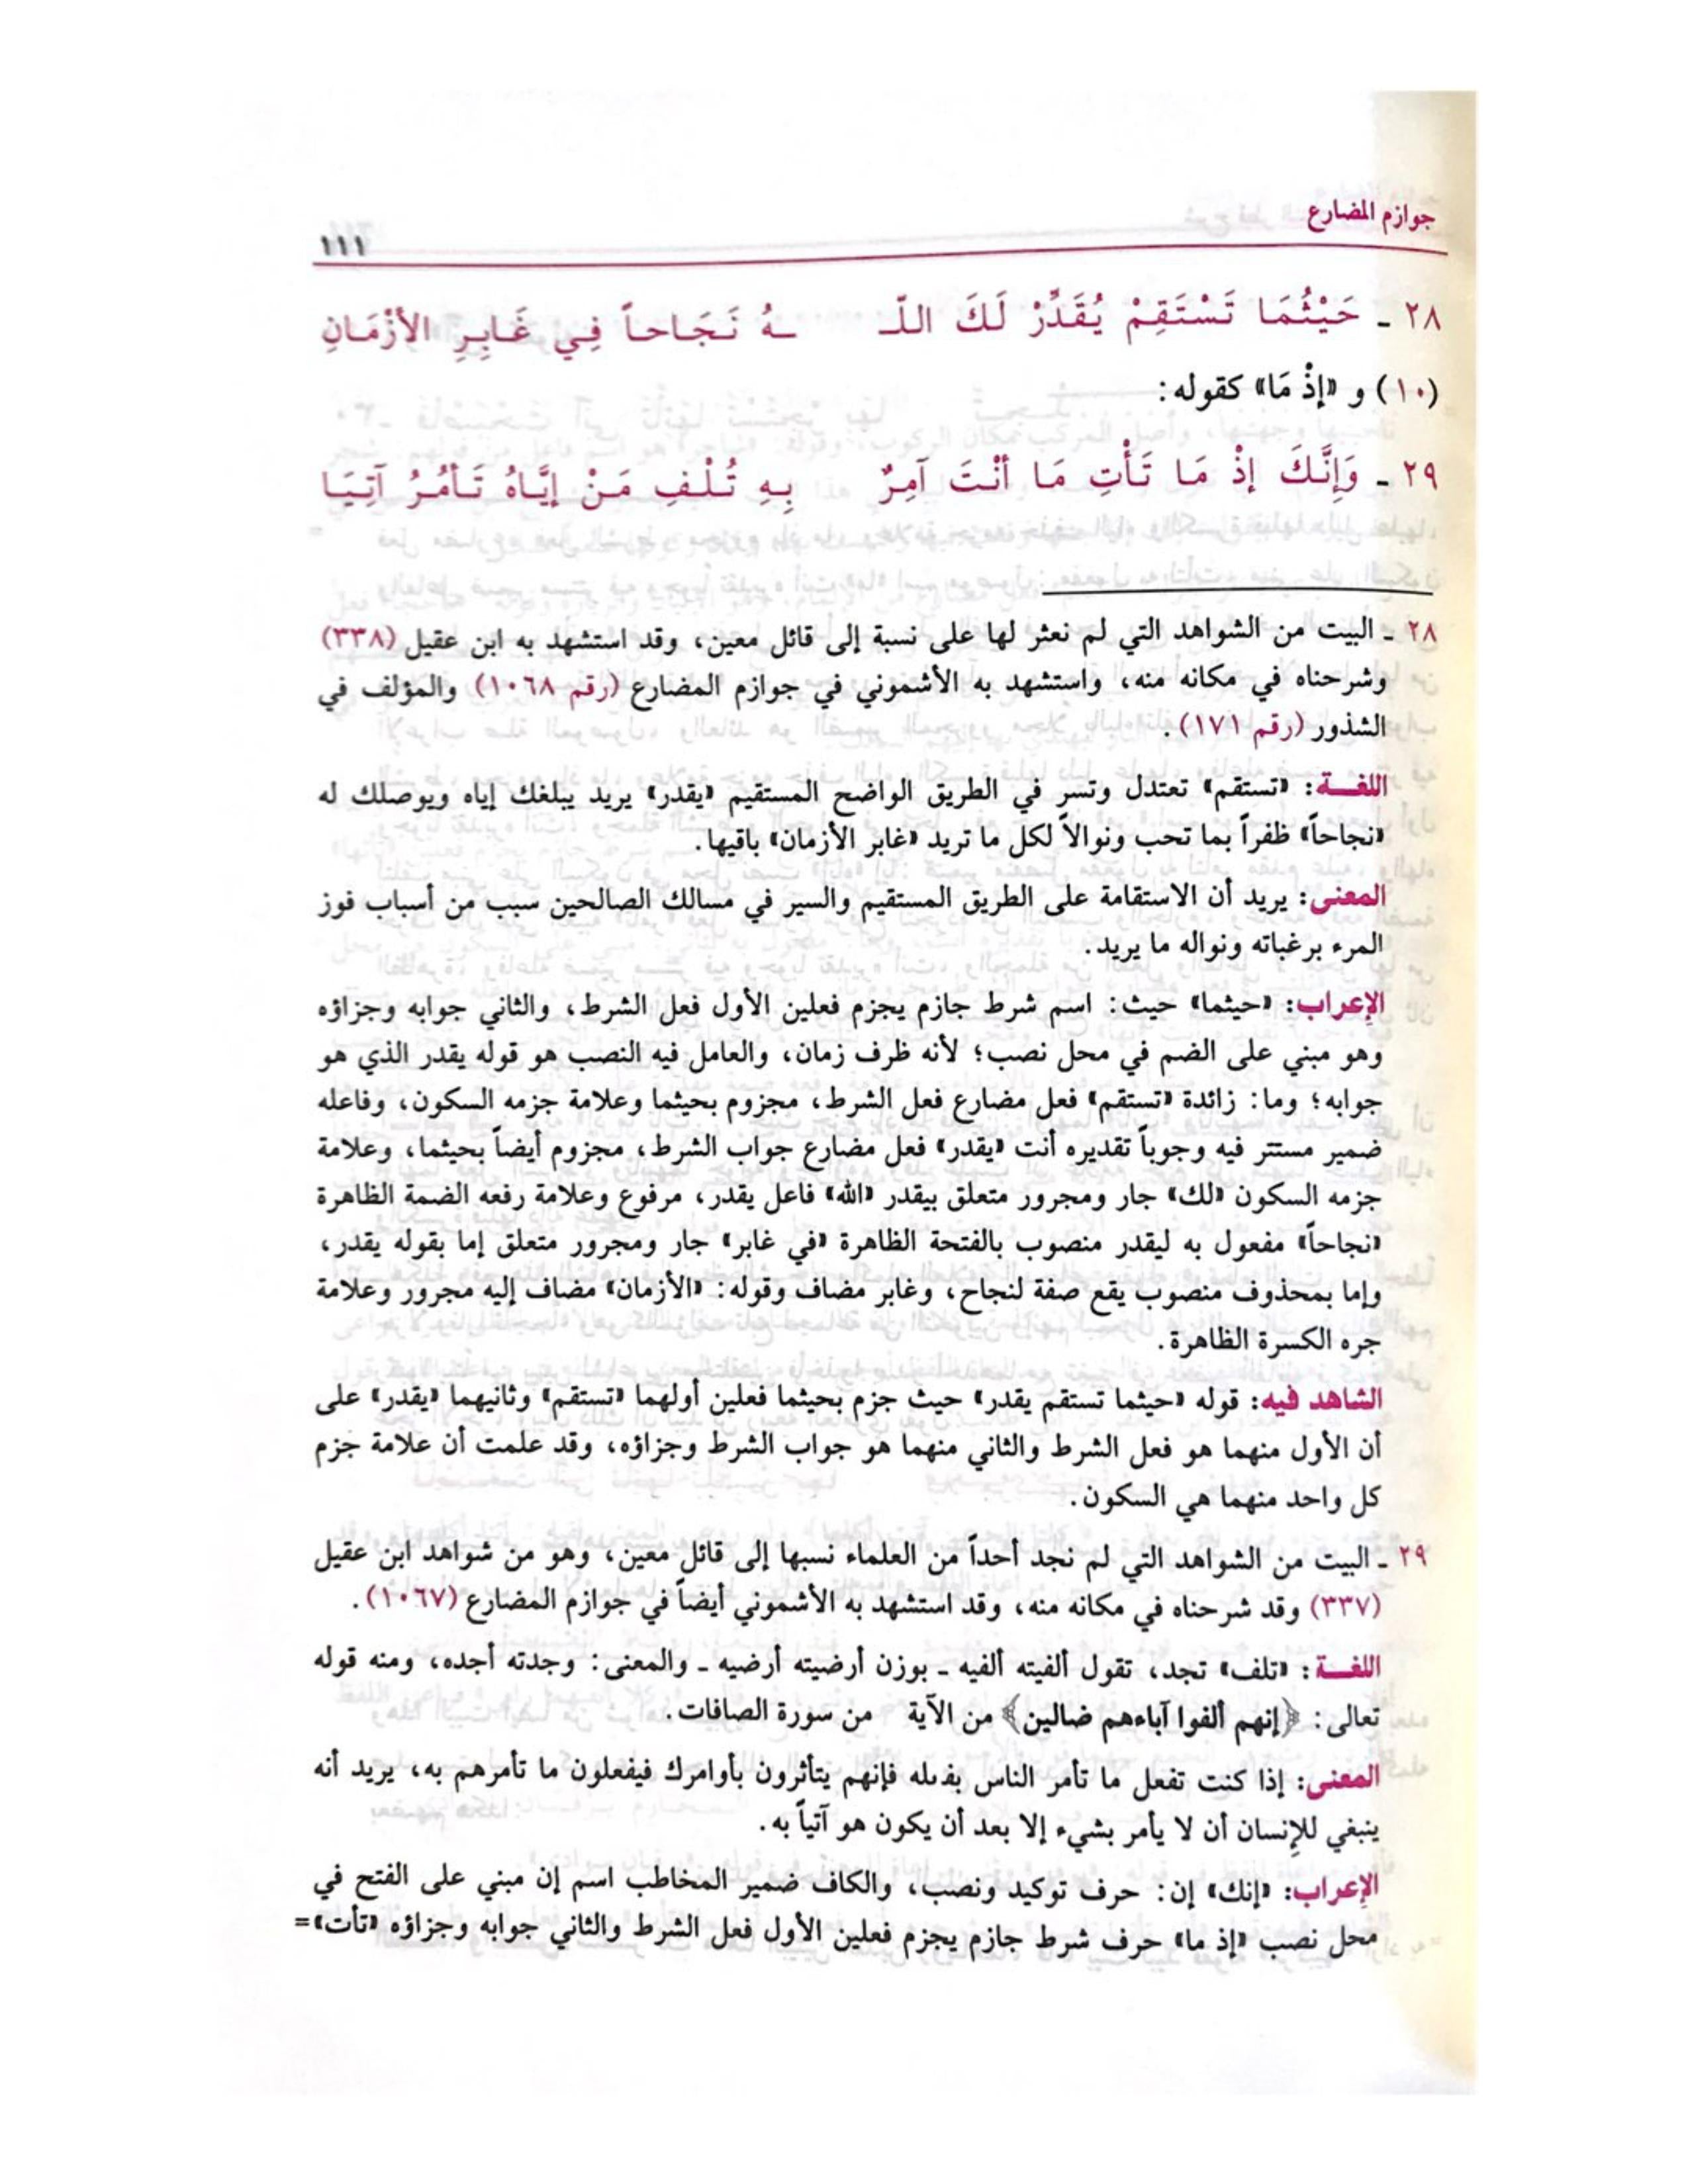 جوازم المضارع
١١١
٢٨ ـ حَيْثُمَا تَسْتَقِمْ يُقَدِّرْ لَكَ اللّـ ـهُ نَجَاحاً فِي غَابِرِ الأزْمَانِ
(١٠) و «إذْ مَا» كقوله:
٢٩ ـ وَإِنَّكَ إذْ مَا تَأْتِ مَا أنْتَ آمِرٌ بِهِ تُلْفِ مَنْ إيَّاهُ تَأمُرُ آتِيَا
٢٨ ـ البيت من الشواهد التي لم نعثر لها على نسبة إلى قائل معين، وقد استشهد به ابن عقيل (٣٣٨)
وشرحناه في مكانه منه، واستشهد به الأشموني في جوازم المضارع (رقم ١٠٦٨) والمؤلف في
الشذور (رقم ١٧١).
اللغـــة: «تستقم» تعتدل وتسر في الطريق الواضح المستقيم «يقدر» يريد يبلغك إياه ويوصلك له
«نجاحاً» ظفراً بما تحب ونوالاً لكل ما تريد «غابر الأزمان» باقيها.
المعنى: يريد أن الاستقامة على الطريق المستقيم والسير في مسالك الصالحين سبب من أسباب فوز
المرء برغباته ونواله ما يريد.
الإعراب: «حيثما» حيث: اسم شرط جازم يجزم فعلين الأول فعل الشرط، والثاني جوابه وجزاؤه
وهو مبني على الضم في محل نصب؛ لأنه ظرف زمان، والعامل فيه النصب هو قوله يقدر الذي هو
جوابه؛ وما: زائدة «تستقم» فعل مضارع فعل الشرط، مجزوم بحيثما وعلامة جزمه السكون، وفاعله
ضمير مستتر فيه وجوباً تقديره أنت «يقدر» فعل مضارع جواب الشرط، مجزوم أيضاً بحيثما، وعلامة
جزمه السكون «لك» جار ومجرور متعلق بيقدر «الله» فاعل يقدر، مرفوع وعلامة رفعه الضمة الظاهرة
«نجاحاً» مفعول به ليقدر منصوب بالفتحة الظاهرة «في غابر» جار ومجرور متعلق إما بقوله يقدر،
وإما بمحذوف منصوب يقع صفة لنجاح، وغابر مضاف وقوله: «الأزمان» مضاف إليه مجرور وعلامة
جره الكسرة الظاهرة.
الشاهد فيه: قوله «حيثما تستقم يقدر» حيث جزم بحيثما فعلين أولهما «تستقم» وثانيهما «يقدر» على
أن الأول منهما هو فعل الشرط والثاني منهما هو جواب الشرط وجزاؤه، وقد علمت أن علامة جزم
كل واحد منهما هي السكون.
٢٩ ـ البيت من الشواهد التي لم نجد أحداً من العلماء نسبها إلى قائل معين، وهو من شواهد ابن عقيل
(٣٣٧) وقد شرحناه في مكانه منه، وقد استشهد به الأشموني أيضاً في جوازم المضارع (١٠٦٧).
اللغـــة: «تلف» تجد، تقول ألفيته ألفيه ـ بوزن أرضيته أرضيه ـ والمعنى: وجدته أجده، ومنه قوله
تعالى: ﴿إنهم ألفوا آباءهم ضالين﴾ من الآية من سورة الصافات.
المعنى: إذا كنت تفعل ما تأمر الناس بفعله فإنهم يتأثرون بأوامرك فيفعلون ما تأمرهم به، يريد أنه
ينبغي للإنسان أن لا يأمر بشيء إلا بعد أن يكون هو آتياً به.
الإعراب: «إنك» إن: حرف توكيد ونصب، والكاف ضمير المخاطب اسم إن مبني على الفتح في
محل نصب «إذ ما» حرف شرط جازم يجزم فعلين الأول فعل الشرط والثاني جوابه وجزاؤه «تأت»=